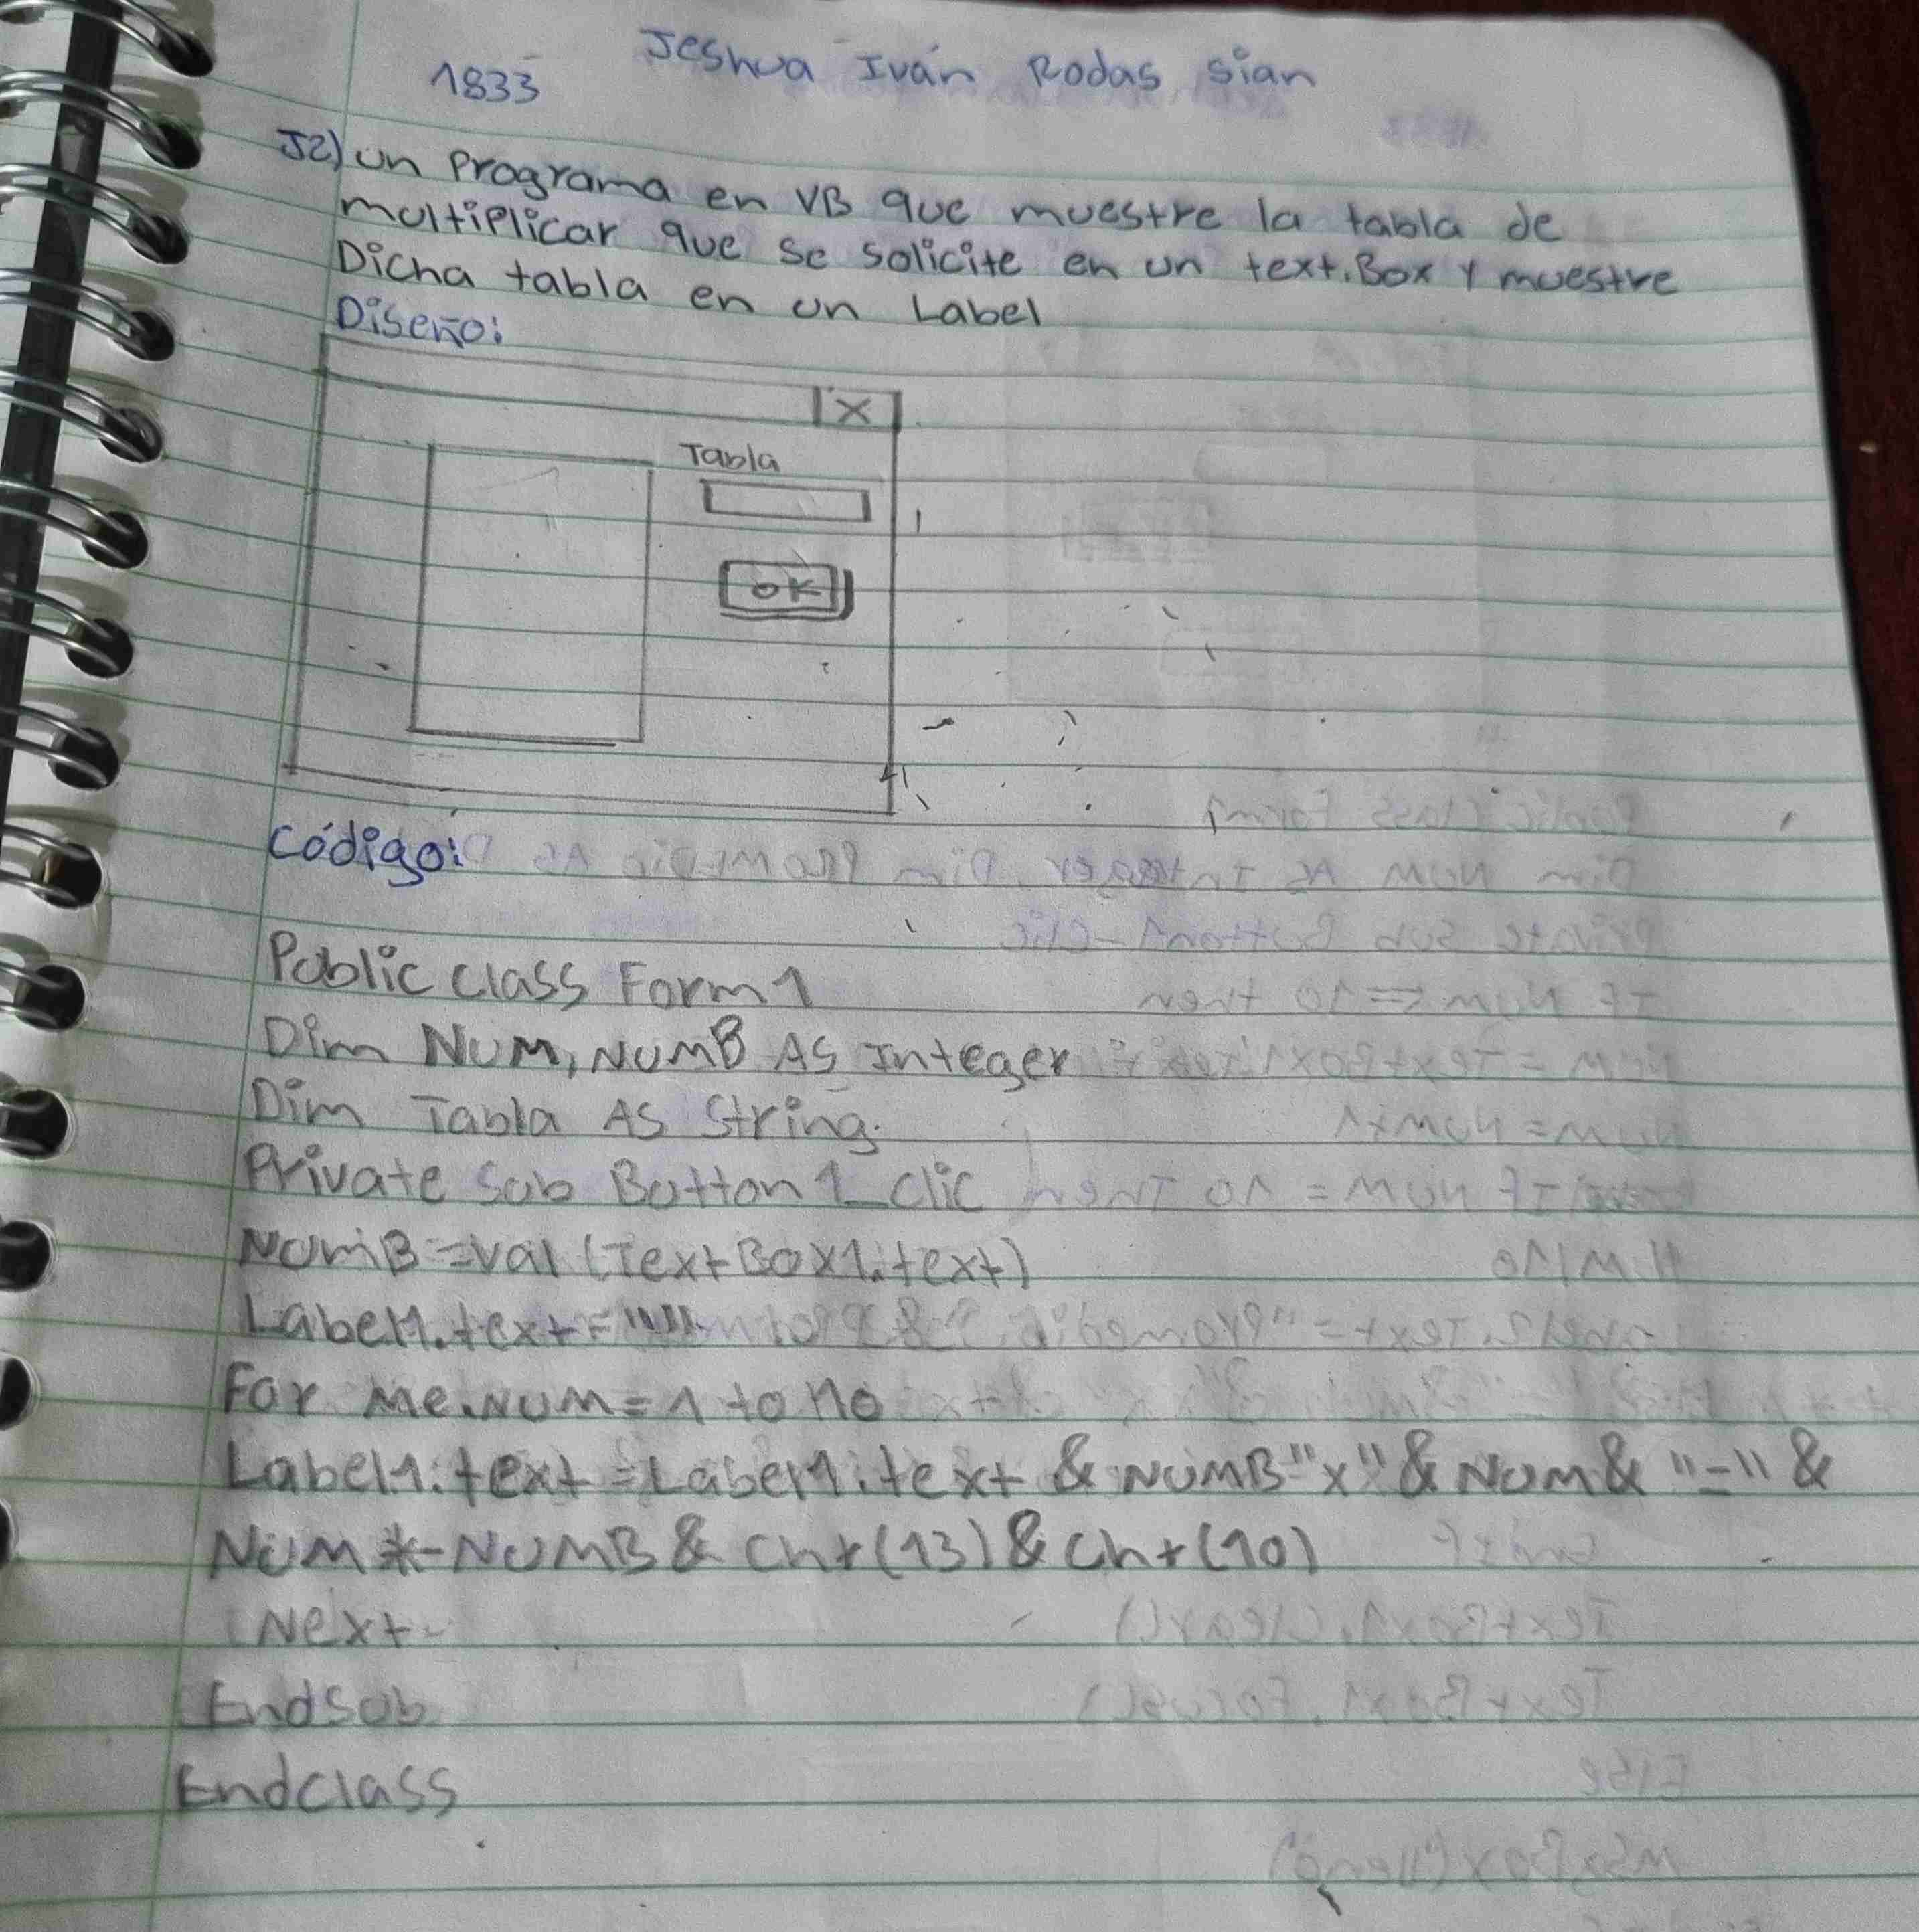 1833 Jeshua Iván Rodas Sian
J2) un Programa en VB que muestre la tabla de
multiplicar que se solicite en un text.Box y muestre
Dicha tabla en un Label
Diseño:
X
Tabla
OK
Código:
Public class Form1
Dim NUM, NUMB As Integer
Dim Tabla AS String.
Private Sub Button1_clic
NUMB=val(TextBox1.text)
Label1.text=""
For Me.NUM=1 to 10
Label1.text=Label1.text & NUMB"x"& NUM& "=" &
NUM * NUMB & Chr(13) & Chr(10)
Next
EndSub
Endclass